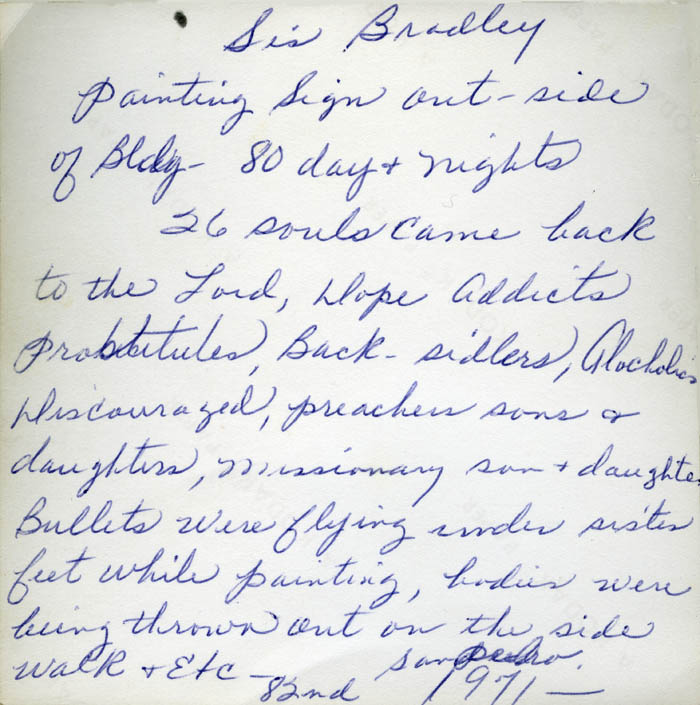 Sis Bradley
painting Sign out-side
of Bldg- 80 day + nights
26 souls came back
to the Lord, Dope Addicts
Probstitutes, Back-sidlers, Alocholics
Discouraged, preachers sons &
daughters, missionary son + daughter
Bullets were flying under sister
feet while painting, bodies were
being thrown out on the side
walk + Etc - San Pedro.
82nd 1971 -